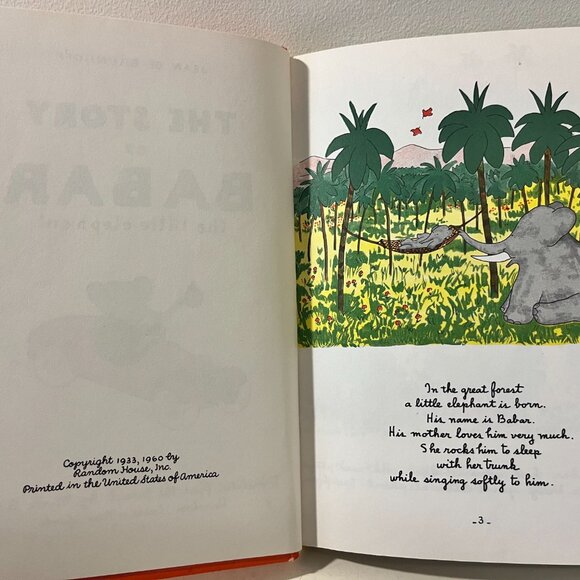 Copyright 1933, 1960 by
Random House, Inc.
Printed in the United States of America
In the great forest
a little elephant is born.
His name is Babar.
His mother loves him very much.
She rocks him to sleep
with her trunk
while singing softly to him.
-3-